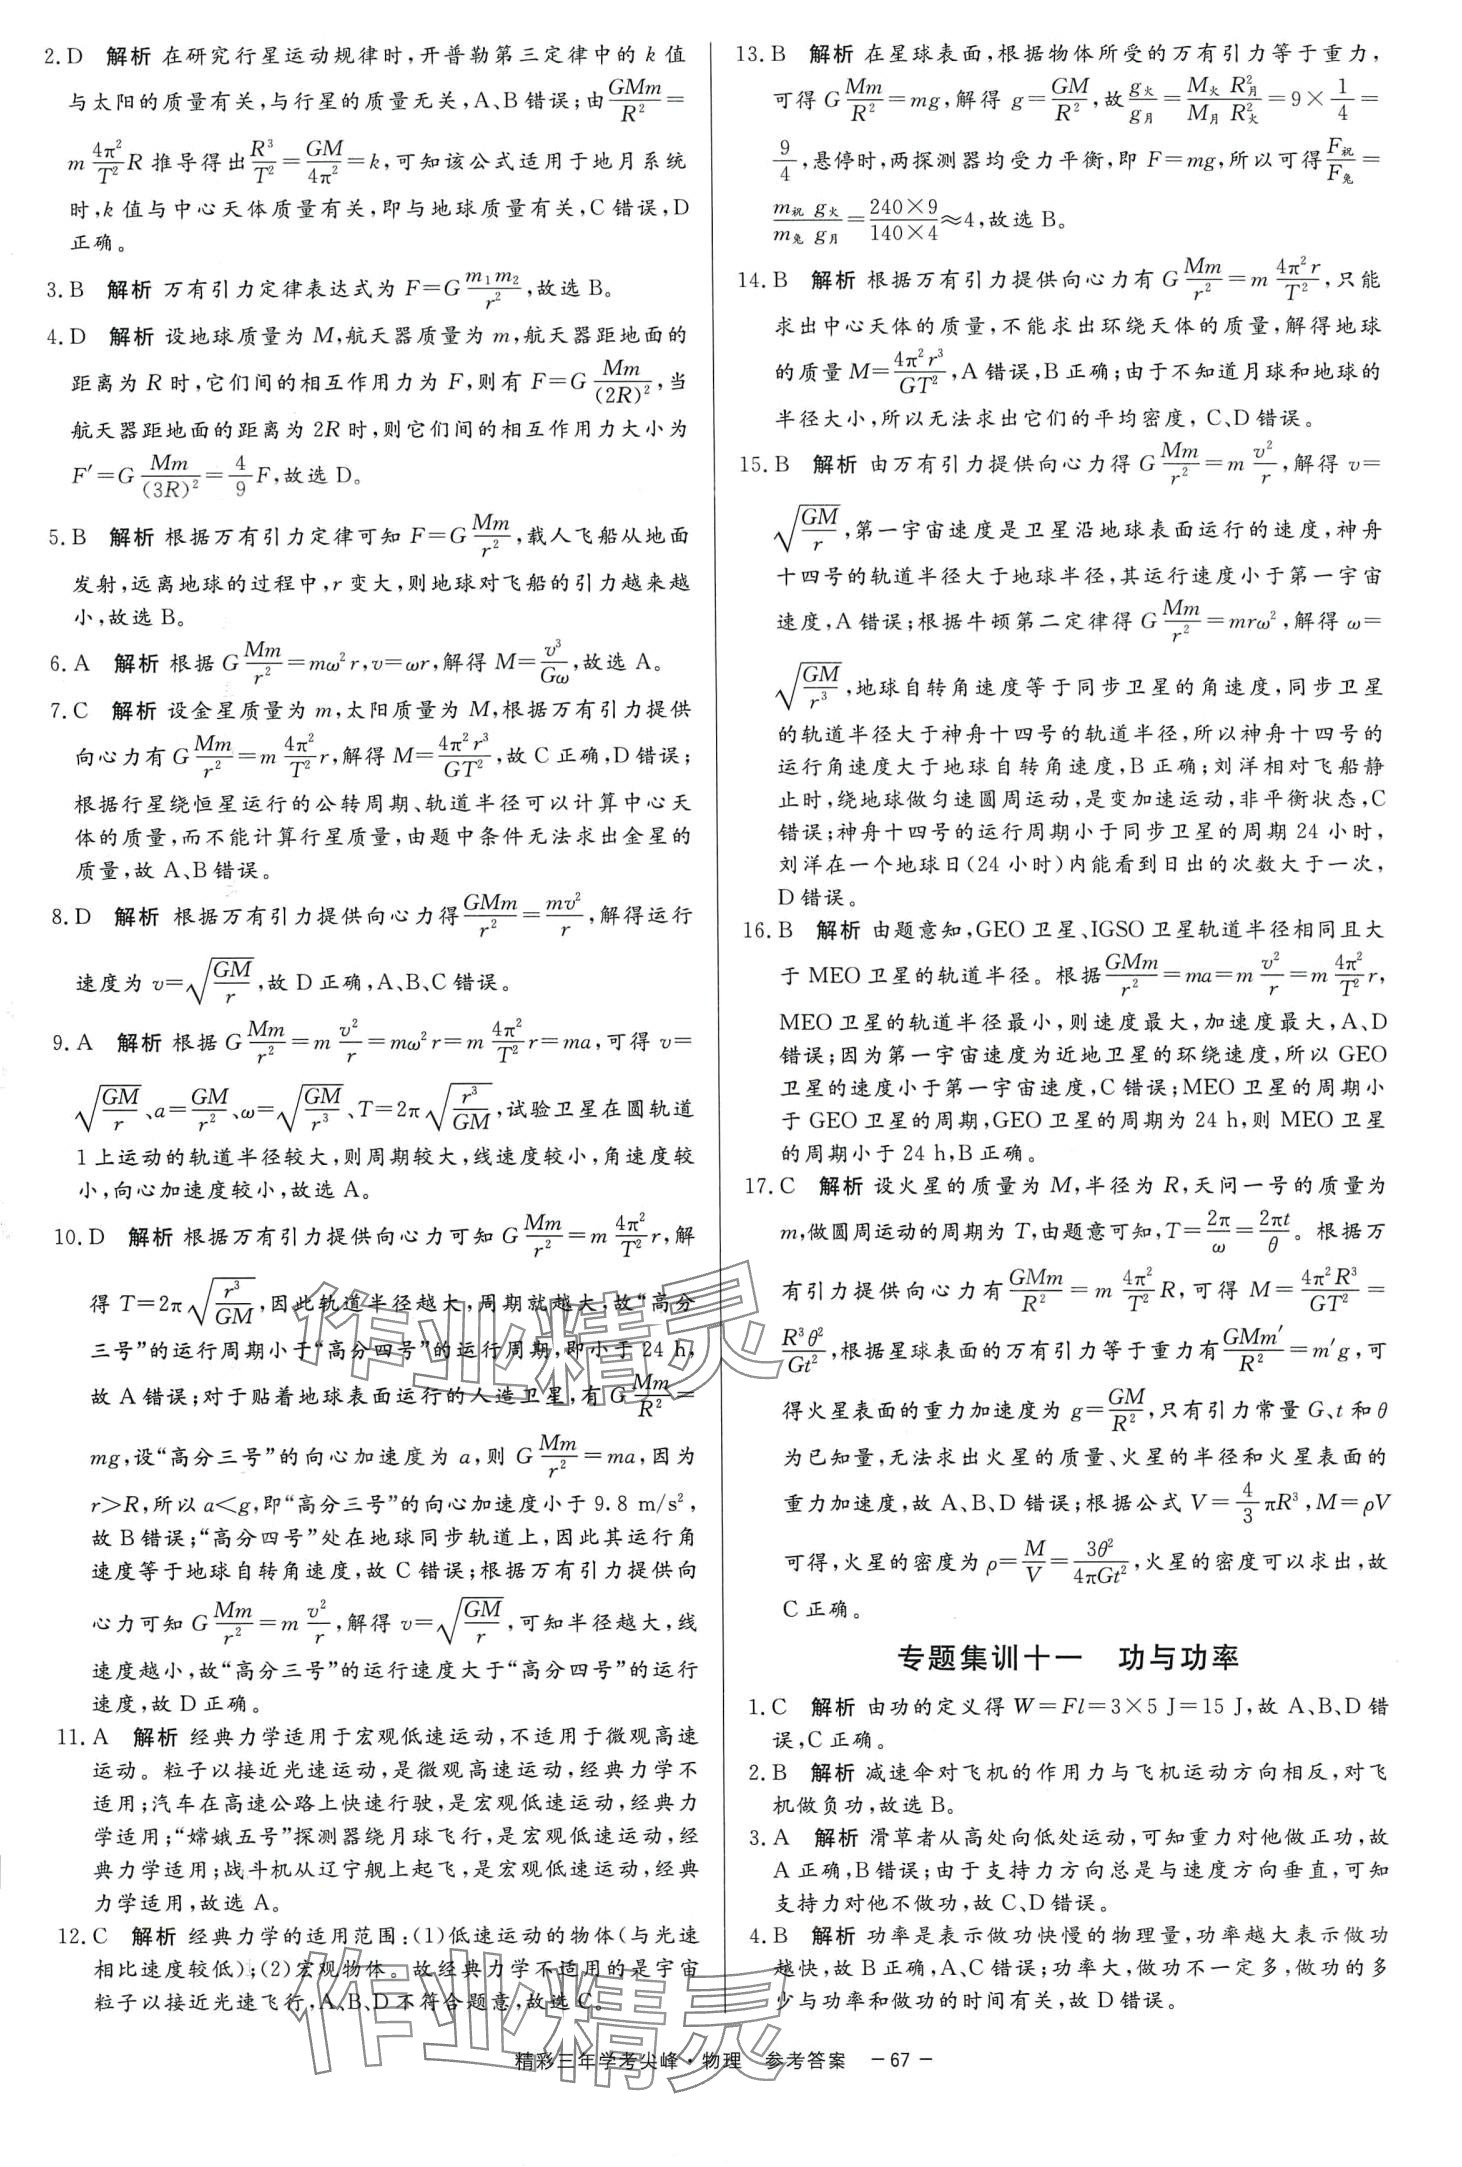 2. D 解析 在研究行星运动规律时,开普勒第三定律中的 k 值
与太阳的质量有关,与行星的质量无关,A、B 错误;由\frac{GMm}{R^2}=
m\frac{4π^2}{T^2}R 推导得出\frac{R^3}{T^2}=\frac{GM}{4π^2}=k,可知该公式适用于地月系统
时,k 值与中心天体质量有关,即与地球质量有关,C 错误,D
正确。
3. B 解析 万有引力定律表达式为 F=G\frac{m_1m_2}{r^2},故选 B。
4. D 解析 设地球质量为 M,航天器质量为 m,航天器距地面的
距离为 R 时,它们间的相互作用力为 F,则有 F=G\frac{Mm}{(2R)^2},当
航天器距地面的距离为 2R 时,则它们间的相互作用力大小为
F′=G\frac{Mm}{(3R)^2}=\frac{4}{9}F,故选 D。
5. B 解析 根据万有引力定律可知 F=G\frac{Mm}{r^2},载人飞船从地面
发射,远离地球的过程中,r 变大,则地球对飞船的引力越来越
小,故选 B。
6. A 解析 根据 G\frac{Mm}{r^2}=mω^2r,v=ωr,解得 M=\frac{v^3}{Gω},故选 A。
7. C 解析 设金星质量为 m,太阳质量为 M,根据万有引力提供
向心力有 G\frac{Mm}{r^2}=m\frac{4π^2}{T^2}r,解得 M=\frac{4π^2r^3}{GT^2},故 C 正确,D 错误;
根据行星绕恒星运行的公转周期、轨道半径可以计算中心天
体的质量,而不能计算行星质量,由题中条件无法求出金星的
质量,故 A、B 错误。
8. D 解析 根据万有引力提供向心力得\frac{GMm}{r^2}=\frac{mv^2}{r},解得运行
速度为 v=\sqrt{\frac{GM}{r}},故 D 正确,A、B、C 错误。
9. A 解析 根据 G\frac{Mm}{r^2}=m\frac{v^2}{r}=mω^2r=m\frac{4π^2}{T^2}r=ma,可得 v=
\sqrt{\frac{GM}{r}}、a=\frac{GM}{r^2}、ω=\sqrt{\frac{GM}{r^3}}、T=2π\sqrt{\frac{r^3}{GM}},试验卫星在圆轨道
1 上运动的轨道半径较大,则周期较大,线速度较小,角速度较
小,向心加速度较小,故选 A。
10. D 解析 根据万有引力提供向心力可知 G\frac{Mm}{r^2}=m\frac{4π^2}{T^2}r,解
得 T=2π\sqrt{\frac{r^3}{GM}},因此轨道半径越大,周期就越大,故“高分
三号”的运行周期小于“高分四号”的运行周期,即小于 24 h,
故 A 错误;对于贴着地球表面运行的人造卫星,有 G\frac{Mm}{R^2}=
mg,设“高分三号”的向心加速度为 a,则 G\frac{Mm}{r^2}=ma,因为
r>R,所以 a<g,即“高分三号”的向心加速度小于 9.8 m/s^2,
故 B 错误;“高分四号”处在地球同步轨道上,因此其运行角
速度等于地球自转角速度,故 C 错误;根据万有引力提供向
心力可知 G\frac{Mm}{r^2}=m\frac{v^2}{r},解得 v=\sqrt{\frac{GM}{r}},可知半径越大,线
速度越小,故“高分三号”的运行速度大于“高分四号”的运行
速度,故 D 正确。
11. A 解析 经典力学适用于宏观低速运动,不适用于微观高速
运动。粒子以接近光速运动,是微观高速运动,经典力学不
适用;汽车在高速公路上快速行驶,是宏观低速运动,经典力
学适用;“嫦娥五号”探测器绕月球飞行,是宏观低速运动,经
典力学适用;战斗机从辽宁舰上起飞,是宏观低速运动,经典
力学适用,故选 A。
12. C 解析 经典力学的适用范围:(1)低速运动的物体(与光速
相比速度较低);(2)宏观物体。故经典力学不适用的是宇宙
粒子以接近光速飞行,A、B、D 不符合题意,故选 C。
13. B 解析 在星球表面,根据物体所受的万有引力等于重力,
可得 G\frac{Mm}{R^2}=mg,解得 g=\frac{GM}{R^2},故\frac{g_火}{g_月}=\frac{M_火}{M_月}\frac{R_月^2}{R_火^2}=9×\frac{1}{4}=
\frac{9}{4},悬停时,两探测器均受力平衡,即 F=mg,所以可得\frac{F_祝}{F_兔}=
\frac{m_祝}{m_兔}\frac{g_火}{g_月}=\frac{240×9}{140×4}≈4,故选 B。
14. B 解析 根据万有引力提供向心力有 G\frac{Mm}{r^2}=m\frac{4π^2r}{T^2},只能
求出中心天体的质量,不能求出环绕天体的质量,解得地球
的质量 M=\frac{4π^2r^3}{GT^2},A 错误,B 正确;由于不知道月球和地球的
半径大小,所以无法求出它们的平均密度,C、D 错误。
15. B 解析 由万有引力提供向心力得 G\frac{Mm}{r^2}=m\frac{v^2}{r},解得 v=
\sqrt{\frac{GM}{r}},第一宇宙速度是卫星沿地球表面运行的速度,神舟
十四号的轨道半径大于地球半径,其运行速度小于第一宇宙
速度,A 错误;根据牛顿第二定律得 G\frac{Mm}{r^2}=mrω^2,解得 ω=
\sqrt{\frac{GM}{r^3}},地球自转角速度等于同步卫星的角速度,同步卫星
的轨道半径大于神舟十四号的轨道半径,所以神舟十四号的
运行角速度大于地球自转角速度,B 正确;刘洋相对飞船静
止时,绕地球做匀速圆周运动,是变加速运动,非平衡状态,C
错误;神舟十四号的运行周期小于同步卫星的周期 24 小时,
刘洋在一个地球日(24 小时)内能看到日出的次数大于一次,
D 错误。
16. B 解析 由题意知,GEO 卫星、IGSO 卫星轨道半径相同且大
于 MEO 卫星的轨道半径。根据\frac{GMm}{r^2}=ma=m\frac{v^2}{r}=m\frac{4π^2}{T^2}r,
MEO 卫星的轨道半径最小,则速度最大,加速度最大,A、D
错误;因为第一宇宙速度为近地卫星的环绕速度,所以 GEO
卫星的速度小于第一宇宙速度,C 错误;MEO 卫星的周期小
于 GEO 卫星的周期,GEO 卫星的周期为 24 h,则 MEO 卫星
的周期小于 24 h,B 正确。
17. C 解析 设火星的质量为 M,半径为 R,天问一号的质量为
m,做圆周运动的周期为 T,由题意可知,T=\frac{2π}{ω}=\frac{2πt}{θ}。根据万
有引力提供向心力有\frac{GMm}{R^2}=m\frac{4π^2}{T^2}R,可得 M=\frac{4π^2R^3}{GT^2}=
\frac{R^3θ^2}{Gt^2},根据星球表面的万有引力等于重力有\frac{GMm′}{R^2}=m′g,可
得火星表面的重力加速度为 g=\frac{GM}{R^2},只有引力常量 G、t 和 θ
为已知量,无法求出火星的质量、火星的半径和火星表面的
重力加速度,故 A、B、D 错误;根据公式 V=\frac{4}{3}πR^3,M=ρV
可得,火星的密度为 ρ=\frac{M}{V}=\frac{3θ^2}{4πGt^2},火星的密度可以求出,故
C 正确。
专题集训十一 功与功率
1. C 解析 由功的定义得 W=Fl=3×5 J=15 J,故 A、B、D 错
误,C 正确。
2. B 解析 减速伞对飞机的作用力与飞机运动方向相反,对飞
机做负功,故选 B。
3. A 解析 滑草者从高处向低处运动,可知重力对他做正功,故
A 正确,B 错误;由于支持力方向总是与速度方向垂直,可知
支持力对他不做功,故 C、D 错误。
4. B 解析 功率是表示做功快慢的物理量,功率越大表示做功
越快,故 B 正确,A、C 错误;功率大,做功不一定多,做功的多
少与功率和做功的时间有关,故 D 错误。
精彩三年学考尖峰·物理 参考答案 －67－
作业精灵
作业精灵